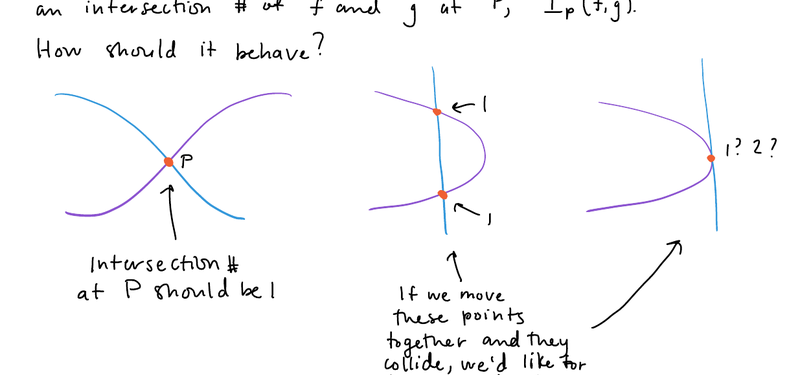 an intersection # of f and g at P, I_p(f,g).
How should it behave?
P
Intersection #
at P should be 1
1
1
If we move
these points
together and they
collide, we'd like for
1? 2?